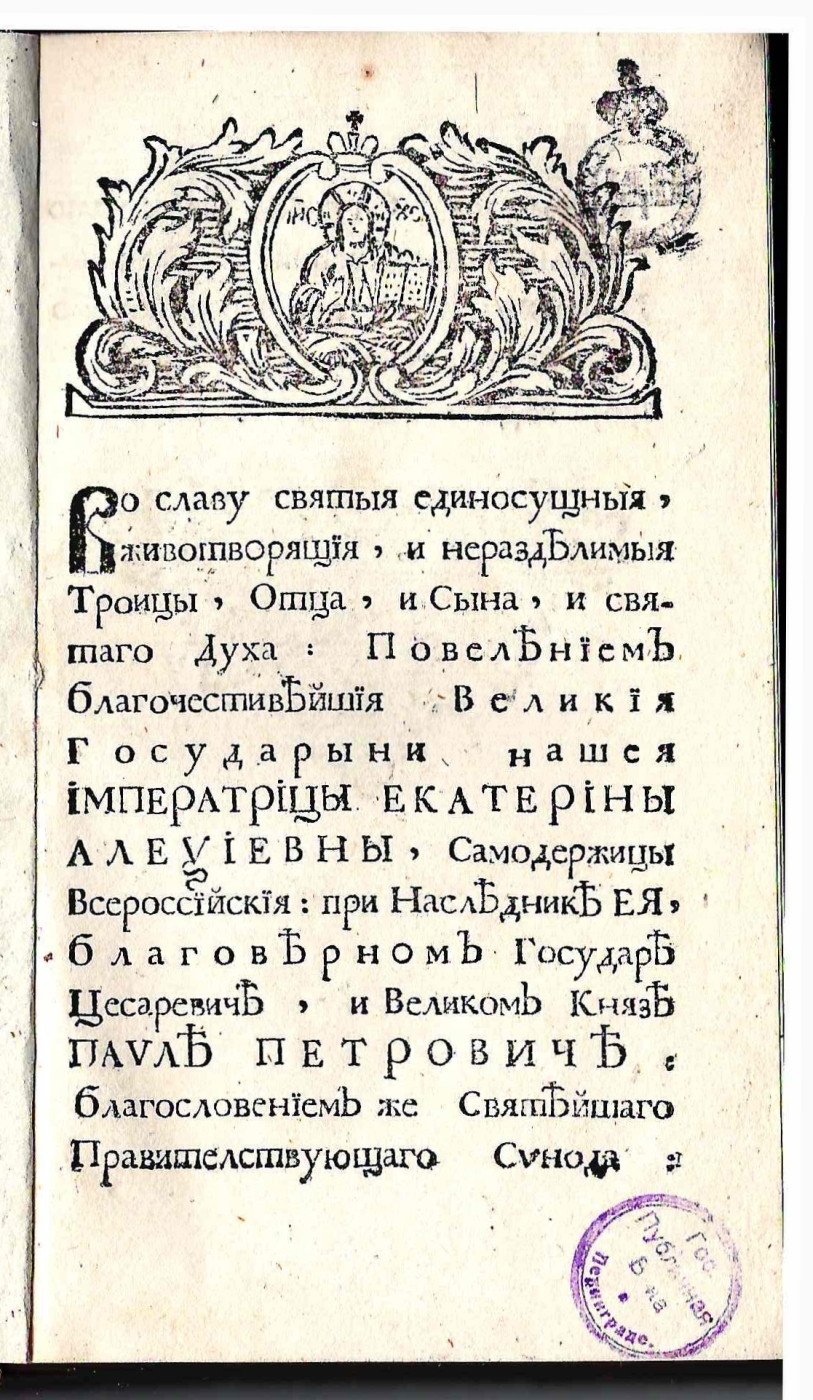 ІИС ХС
Во славу святыя единосущныя ,
животворящїя , и нераздѣлимыя
Троицы , Отца , и Сына , и свя-
таго Духа : Повелѣнїемъ
благочестивѣйшїя Великїя
Государыни нашея
ІМПЕРАТРІЦЫ ЕКАТЕРІНЫ
АЛЕѮІЕВНЫ , Самодержицы
Всероссїйскїя : при Наслѣдникѣ ЕЯ ,
благовѣрномъ Государѣ
Цесаревичѣ , и Великомъ Князѣ
ПАѴЛѢ ПЕТРОВИЧѢ :
благословенїемъ же Святѣйшаго
Правителствующаго Сѵнода :
Гос.
Публичная
Б-ка
в
Ленинграде.